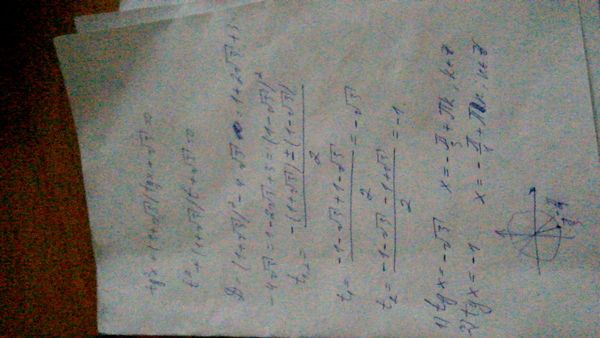 tg²x + (1+√3)tgx + √3 = 0
t² + (1+√3)t + √3 = 0
D = (1+√3)² - 4√3 = 1 + 2√3 + 3 -
- 4√3 = 1 - 2√3 + 3 = (1-√3)²
t₁,₂ = -(1+√3) ± (1-√3) / 2
t₁ = -1-√3+1-√3 / 2 = -√3
t₂ = -1-√3-1+√3 / 2 = -1
1) tg x = -√3 x = -π/3 + πk, k∈Z
2) tg x = -1 x = -π/4 + πk, k∈Z